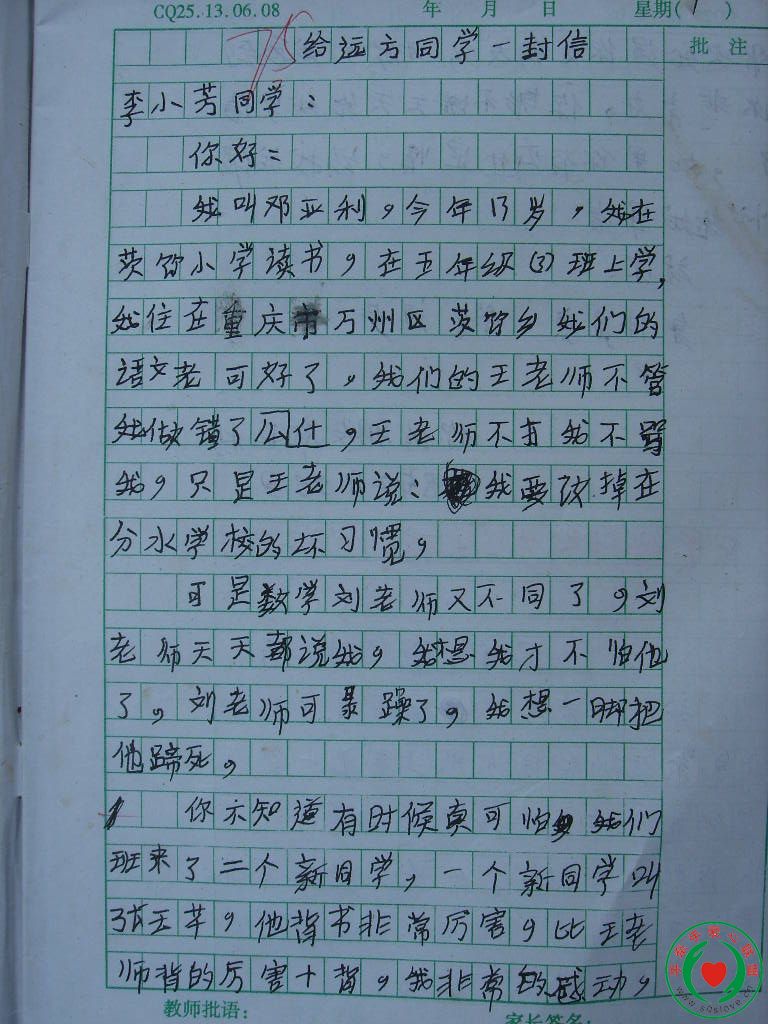 CQ25.13.06.08 年 月 日 星期( )
75 给远方同学一封信 批 注
李小芳同学：
你好：
我叫邓亚利，今年13岁，我在
茨竹小学读书，在五年级(3)班上学，
我住在重庆市万州区茨竹乡我们的
语文老可好了，我们的王老师不管
我做错了公什，王老师不打我不骂
我，只是王老师说：我要改掉在
分水学校的坏习惯，
可是数学刘老师又不同了，刘
老师天天都说我，我想我才不怕他
了，刘老师可暴躁了，我想一脚把
他蹄死，
你不知道有时候真可怕 我们
班来了二个新同学，一个新同学叫
王苹，他背书非常厉害，比王老
师背的厉害十背，我非常的感动，
教师批语： 家长签名：
www.sqslove.cn